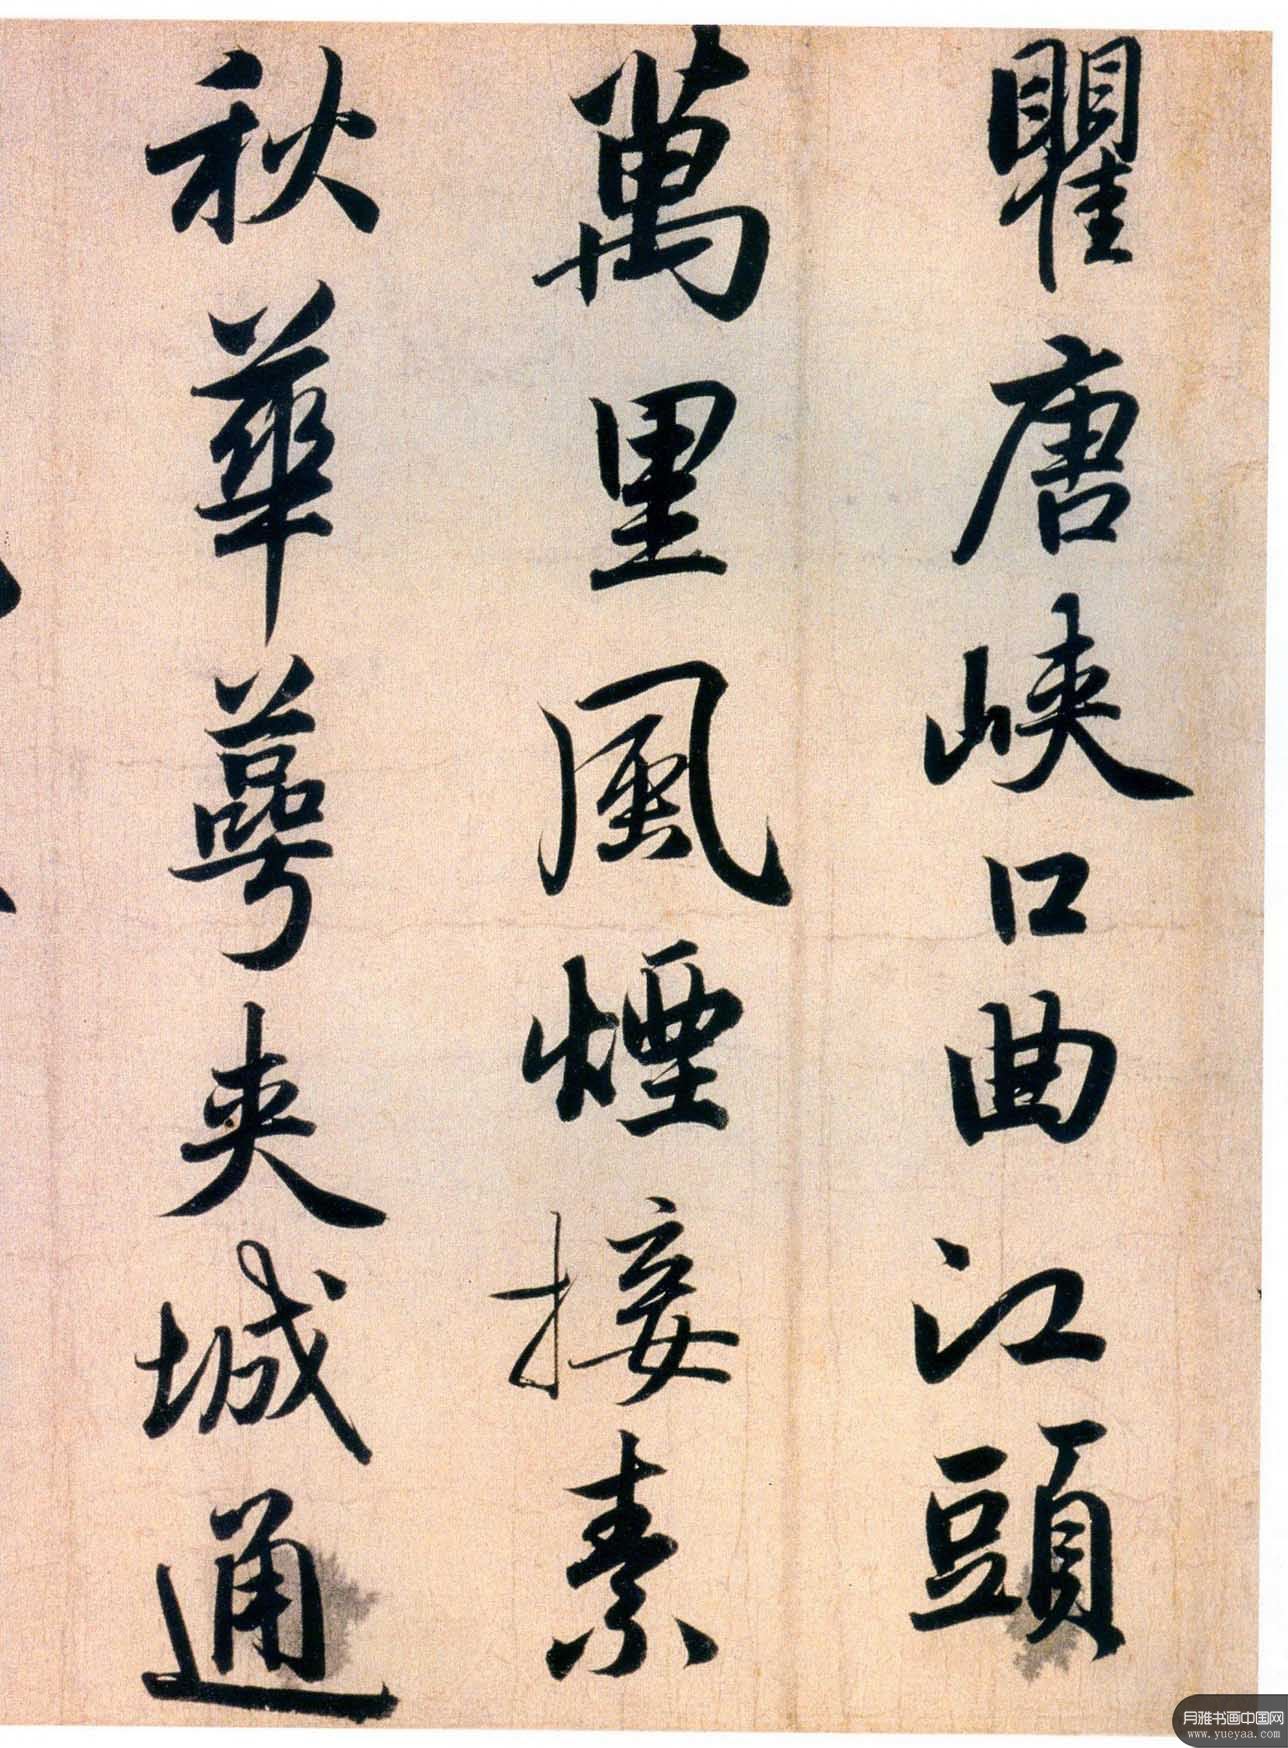 瞿唐峽口曲江頭
萬里風煙接素
秋華萼夾城通
月雅书画中国网
www.yueyaa.com